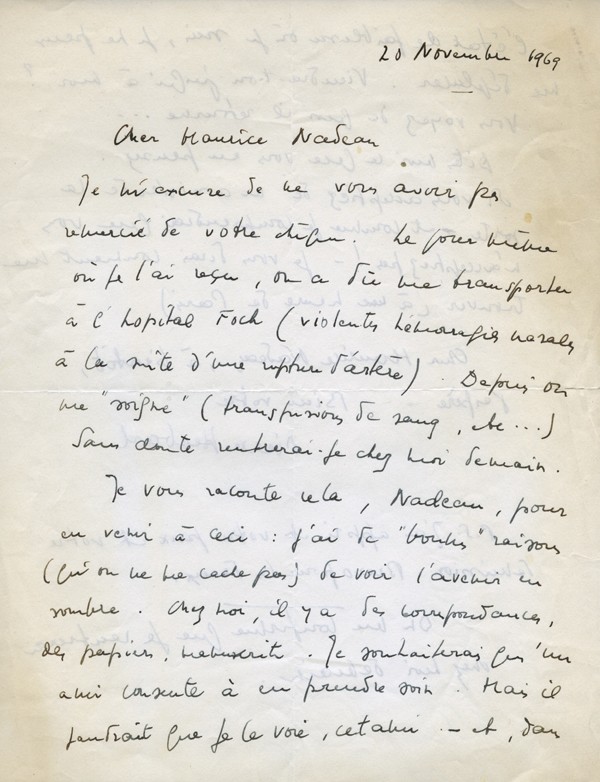 20 Novembre 1969
Cher Maurice Nadeau
Je m'excuse de ne vous avoir pas
remercié de votre chèque. Le jour même
où je l'ai reçu, on a dû me transporter
à l'hopital Foch (violentes hémorragies nasales
à la suite d'une rupture d'artère). Depuis on
me "soigne" (transfusions de sang, etc...)
Sans doute rentrerai-je chez moi demain.
Je vous raconte cela, Nadeau, pour
en venir à ceci : j'ai de "bonnes" raisons
(qu'on ne me cache pas) de voir l'avenir en
sombre. Chez moi, il y a des correspondances,
des papiers, manuscrits. Je souhaiterais qu'un
ami consente à en prendre soin. Mais il
faudrait que je le voie, cet ami. — et, dans